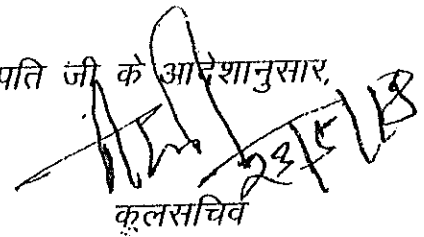 पति जी के आदेशानुसार,
23/5/18
कुलसचिव